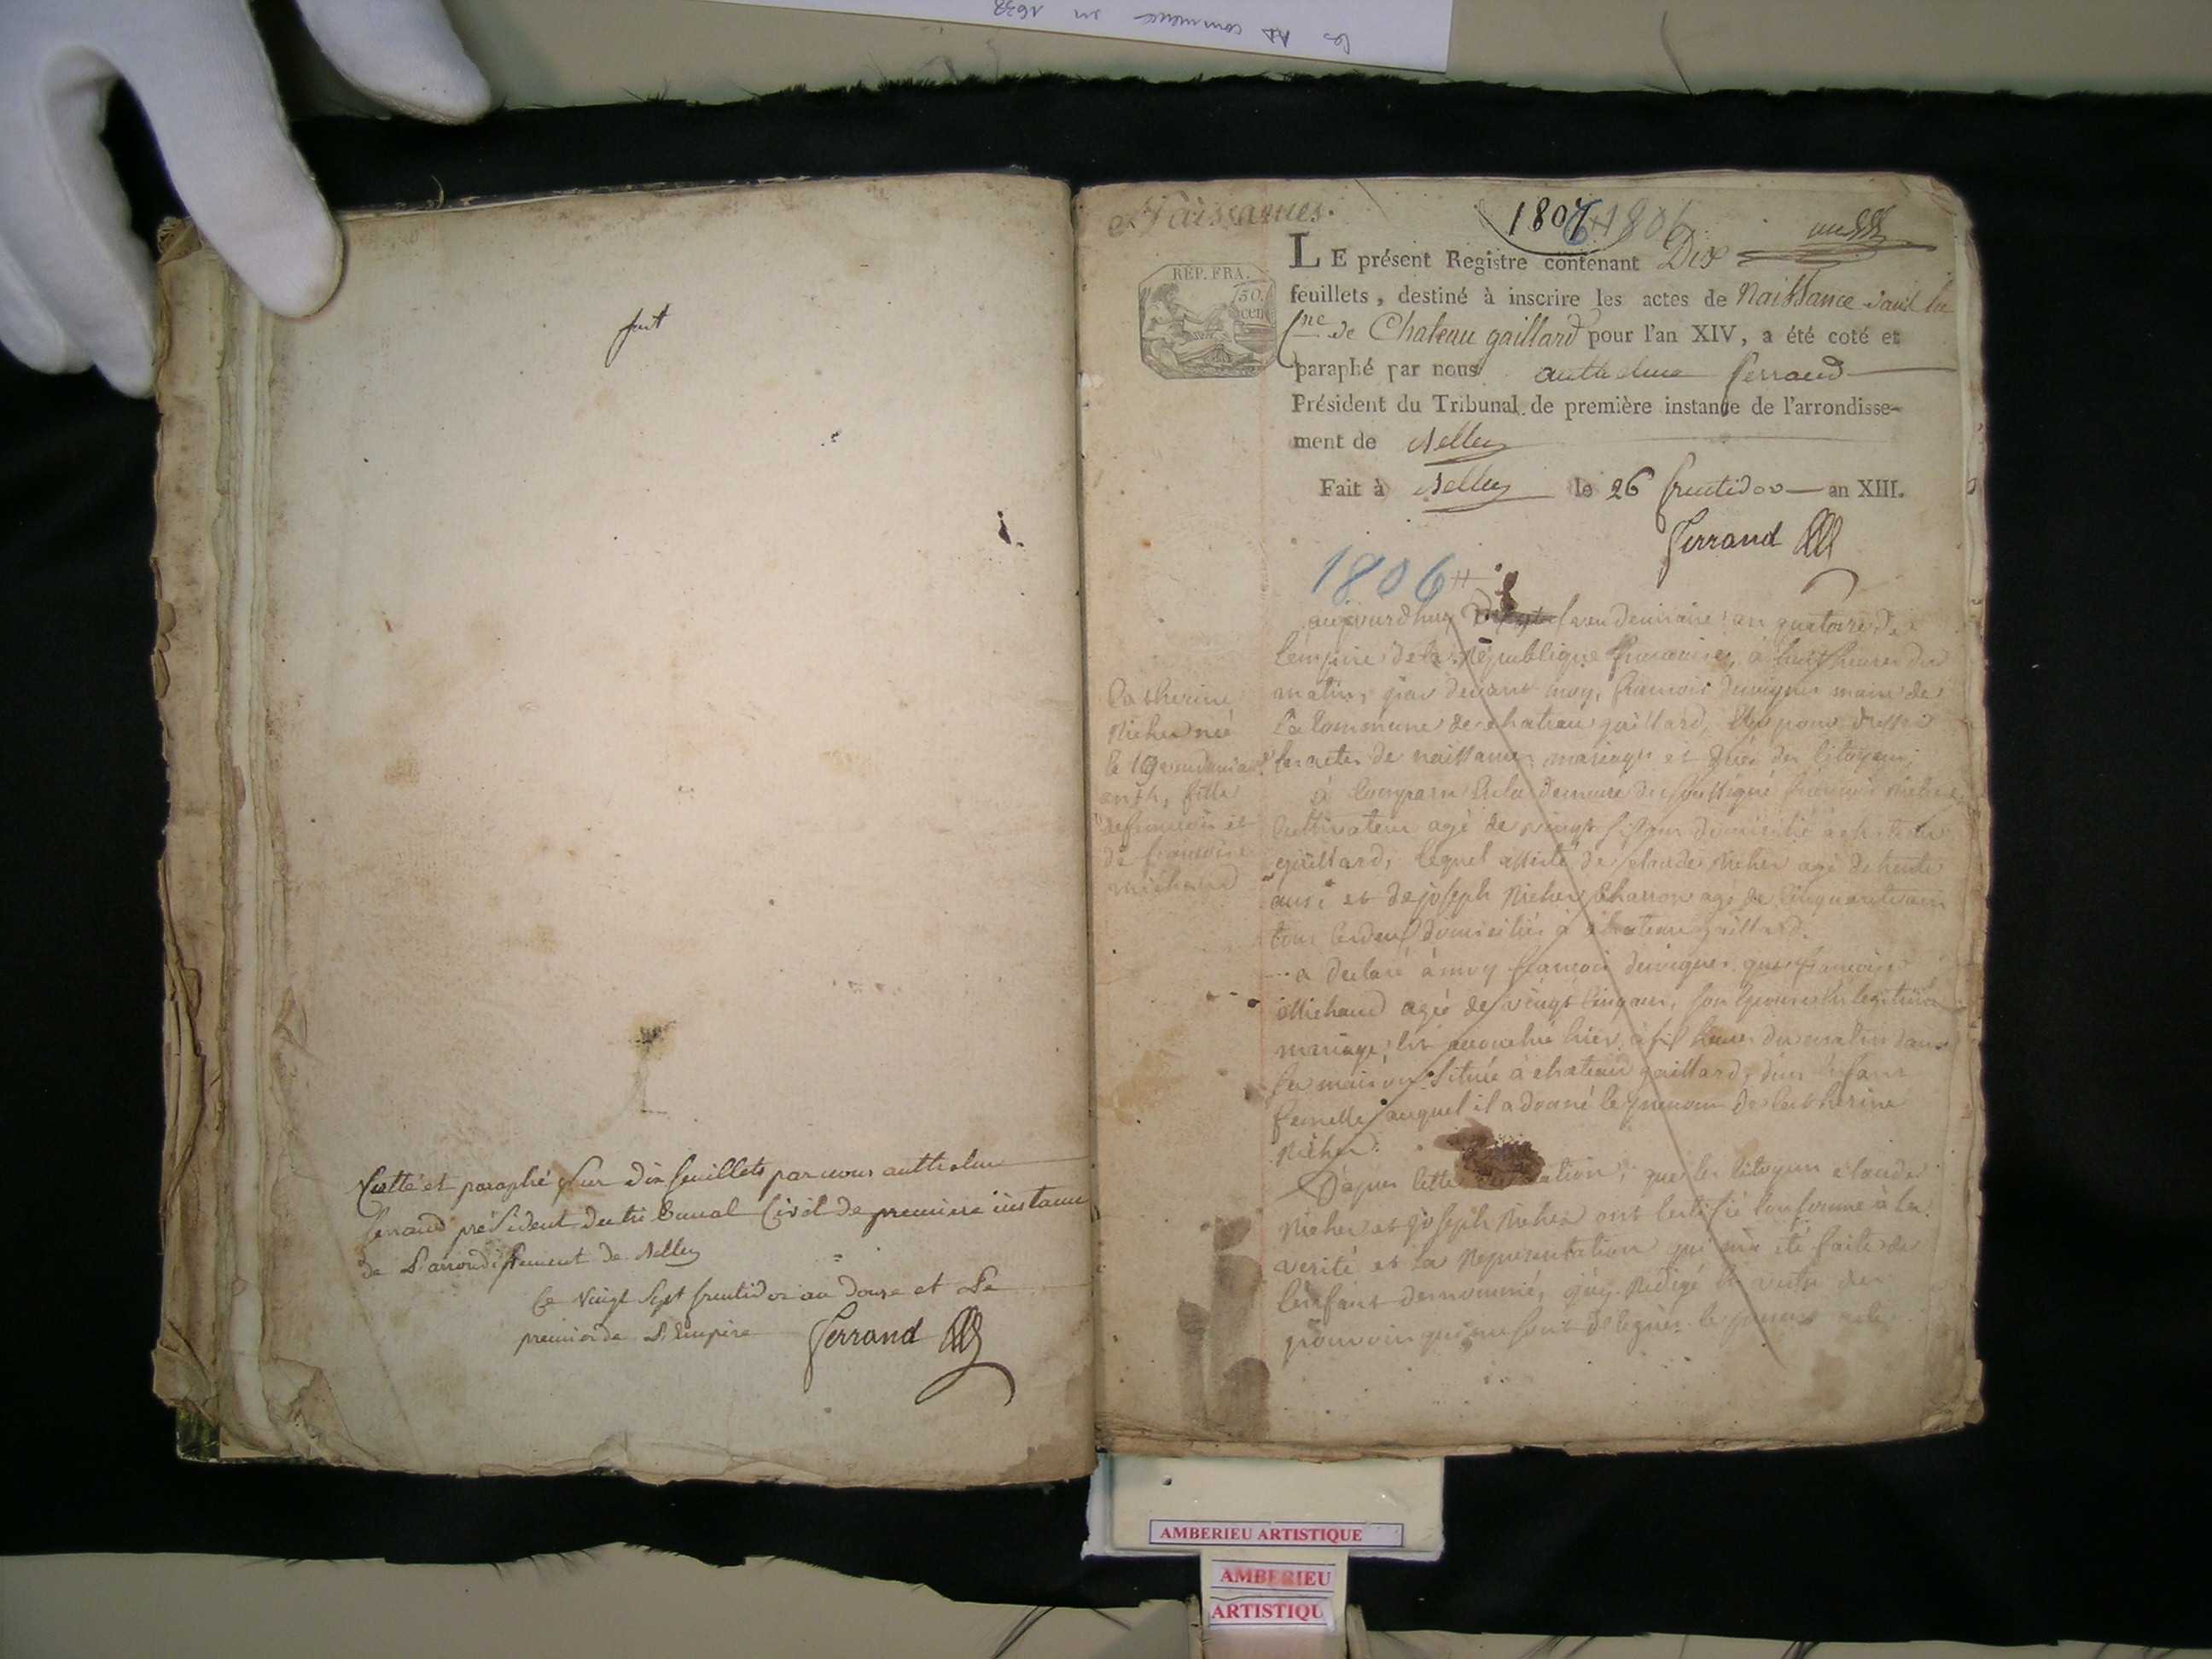 Les AD commence en 1638
fait
Cotté et paraphé sur dix feuillets par nous anthelme
ferrand président du tribunal Civil de premiere instance
de L'arrondissement de Belley
Ce vingt sept fructidor an douze et Le
premier de L'Empire ferrand
Naissances.
1806
LE présent Registre contenant Dix
feuillets, destiné à inscrire les actes de Naissance dans la
Cne de Chateau gaillard pour l'an XIV, a été coté et
paraphé par nous anthelme ferrand
Président du Tribunal de première instance de l'arrondisse-
ment de Belley
Fait à Belley le 26 fructidor an XIII.
ferrand
RÉP. FRA.
50.
cen
1806
aujourdhuy vendemiaire an quatorze de
L'empire de la République françaises, à huit heures du
matin, par devant moy, francois maire de
La Commune de chateau gaillard, Elu pour dresser
les actes de naissance, mariages et décés des Citoyens,
à Comparu En la demeure du soussigné francois
Cultivateur agé de vingt domicilié a chateau
gaillard, lequel assisté de claude agé de trente
ans et de joseph charron agé de Cinquante ans
tous les deux domiciliés à chateau gaillard.
a declaré à moy francois que francoise
Michaud agée de vingt Cinq ans, son Epouse En legitime
mariage, Est accouchée hier à six heures du matin dans
sa maison située à chateau gaillard, d'un Enfant
femelle auquel il a donné le prenom de Catherine
D'apres Cette que les Citoyens claude
et joseph ont Certifié Conforme à la
verité et la Representation qui m'a été faite de
L'enfant denommé, j'ay Redigé En vertu des
pouvoirs qui me sont delegués le present acte
Catherine
née
le 19 vendemiaire
an 14, fille
de francois et
de francoise
michaud
AMBERIEU ARTISTIQUE
AMBERIEU
ARTISTIQU